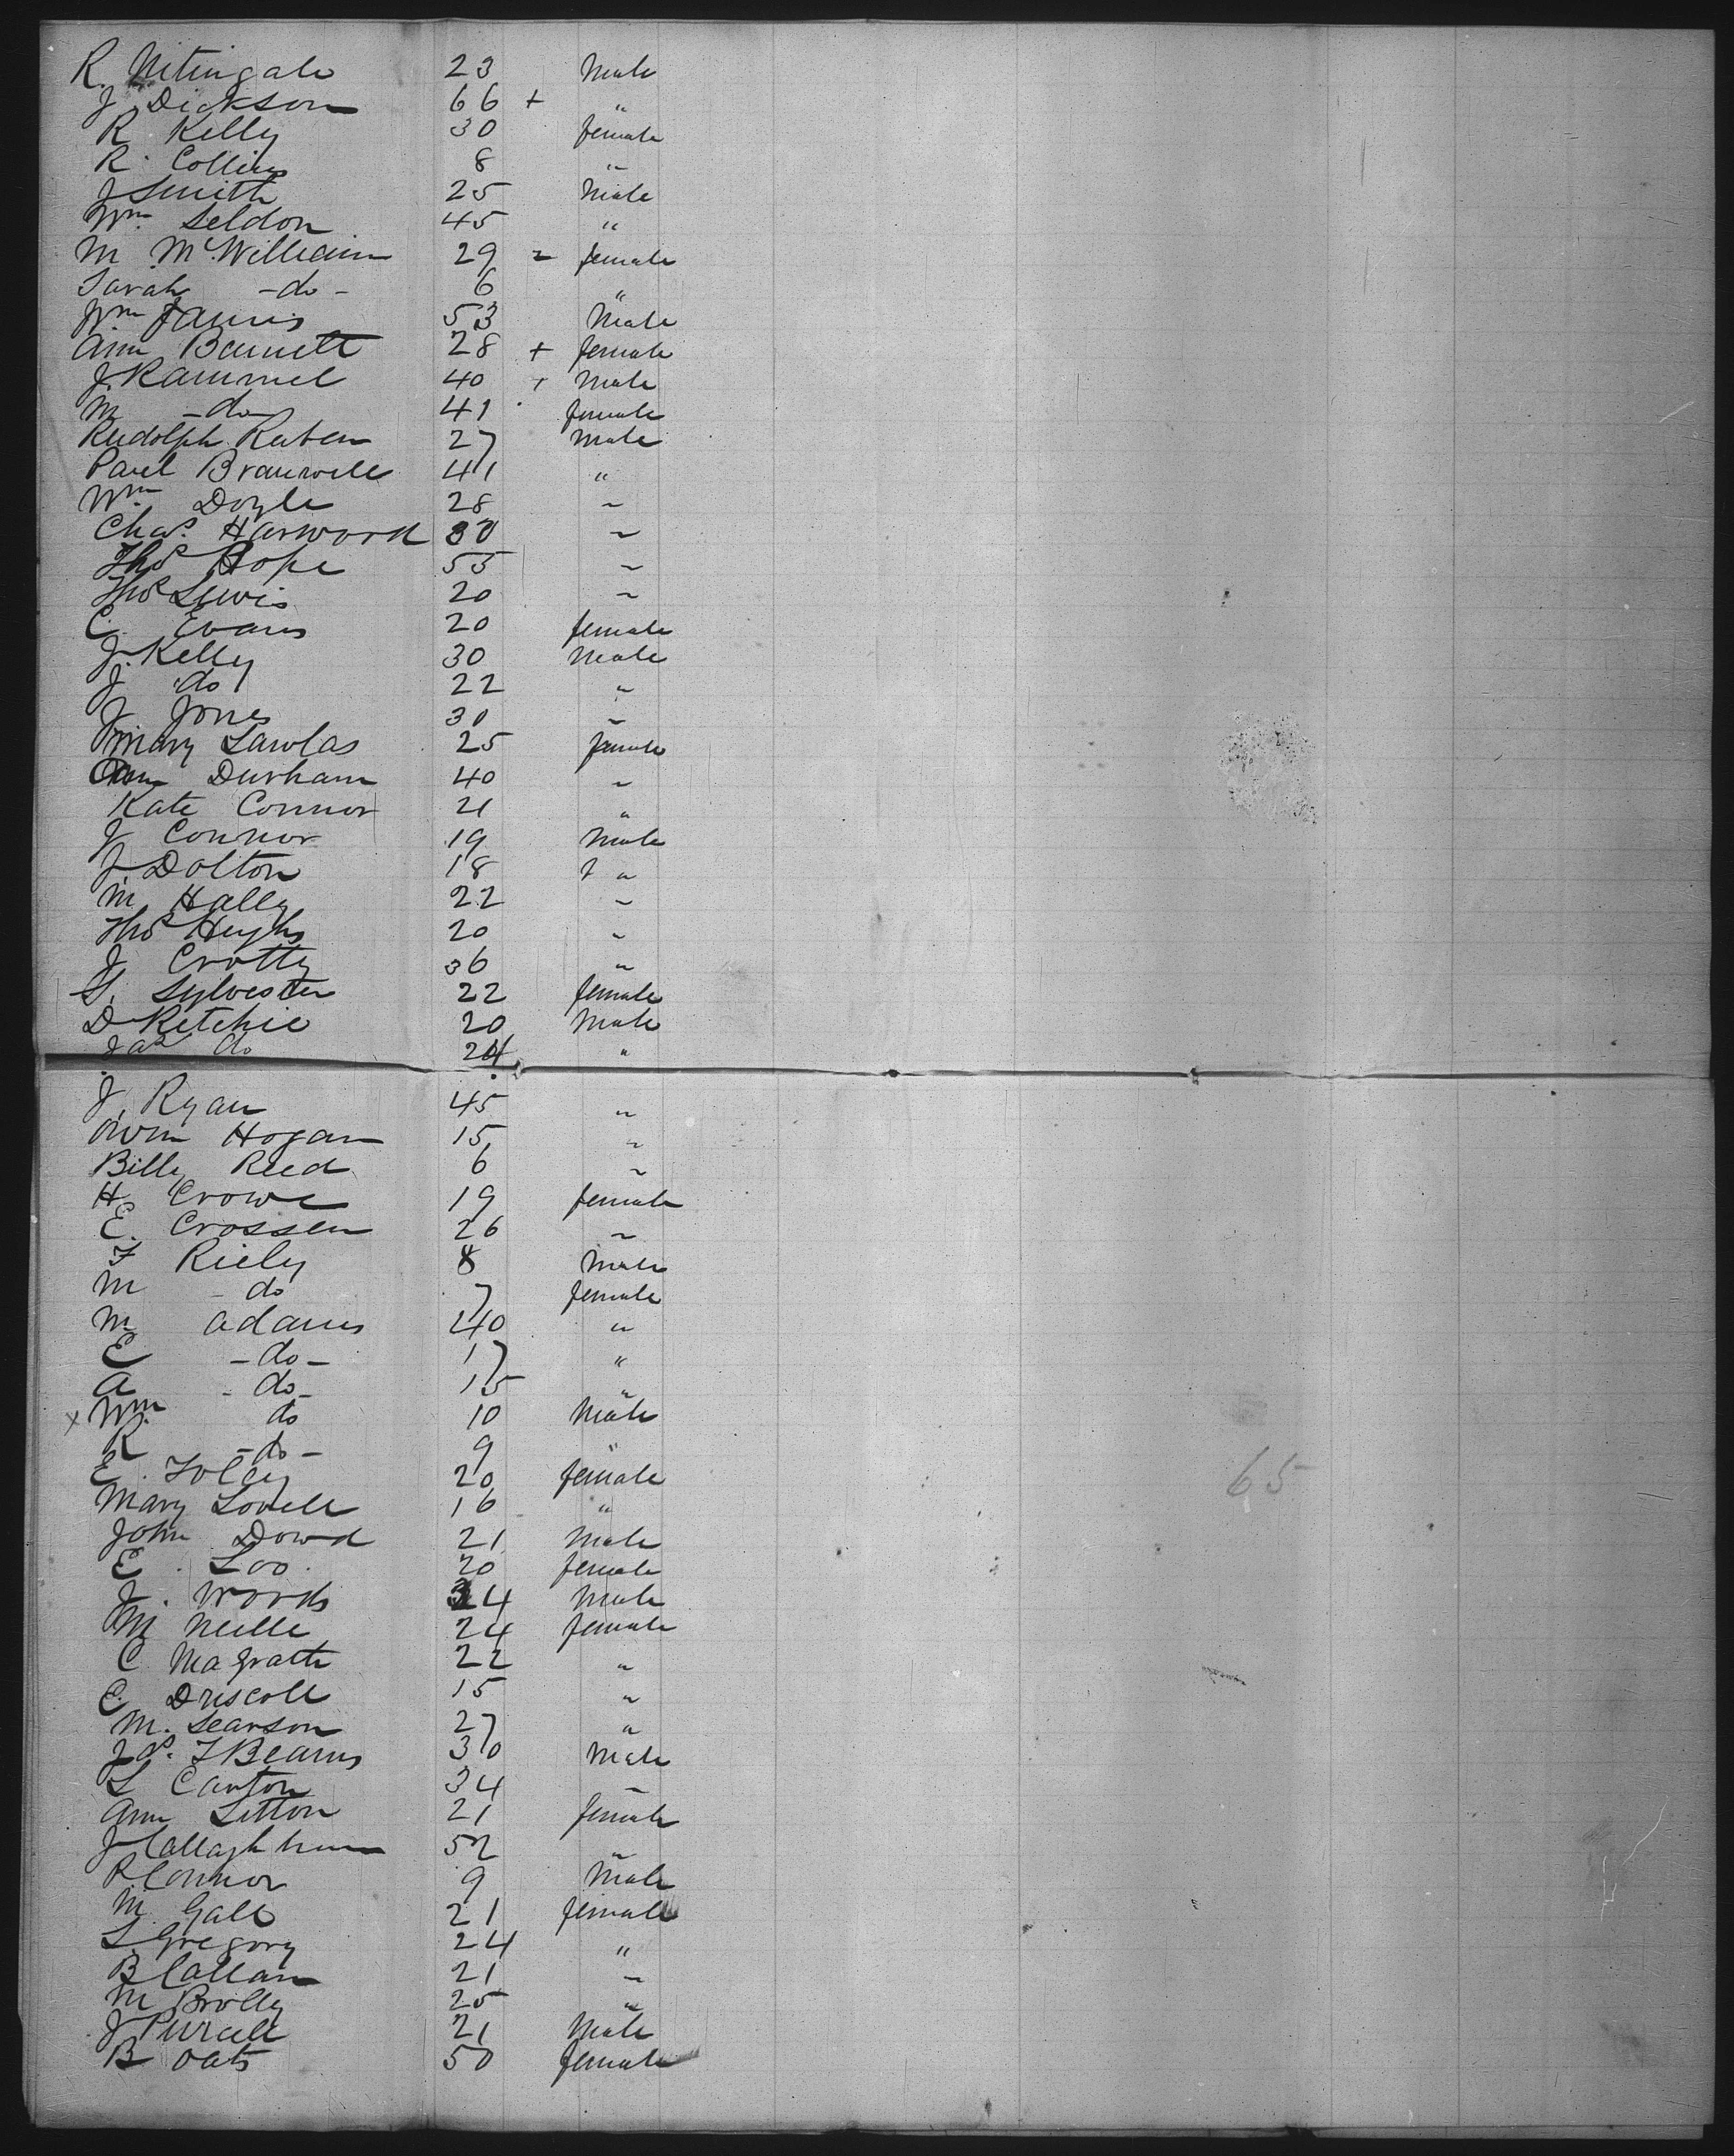 R. Nitingale 23 Male
J. Dickson 66 + "
R Kelly 30 female
R. Collins 8 "
J Smith 25 Male
Wm. Seldon 45 "
M McWilliam 29 - female
Sarah -do- 6 "
Wm 53 Male
Ann Barnett 28 + female
J. Rammel 40 + Male
M -do- 41 female
Rudolph Ruben 27 Male
Paul Bramwell 41 "
Wm. Doyle 28 "
Chas. Harwood 30 "
Thos Hope 55 "
Thos Lewis 20 "
C. Evans 20 female
J. Kelly 30 Male
J do 22 "
J Jones 30 "
Mary Lawlas 25 female
Durham 40 "
Kate Connor 21 "
J Connor 19 Male
J. Dolton 18 + "
M Hally 22 "
Thos Hughs 20 "
J Crotty 36 "
S. Sylvester 22 female
D Ritchie 20 Male
Jas do 24 "
J. Ryan 45 "
Owen Hogan 15 "
Billy Reed 6 "
H Crowe 19 female
E. Crossen 26 "
F Riely 8 Male
M - do 7 female
M Adams 40 "
E -do- 17 "
A - do- 15 "
x Wm. do 10 Male
R -do- 9 "
E. Foley 20 female
Mary Lovell 16 "
65
John Dowd 21 Male
E. Loo 20 female
J. Woods 34 Male
M Neille 24 female
C Magrath 22 "
E. Driscoll 15 "
M. Searson 27 "
Jas. F Bearns 30 Male
L Canton 34 "
Ann Litton 21 female
J Callaghhan 52 "
R Connor 9 Male
M. Gall 21 female
L. Gregory 24 "
B Callan 21 "
M Brolly 25 "
J Purcell 21 Male
B Oats 50 female